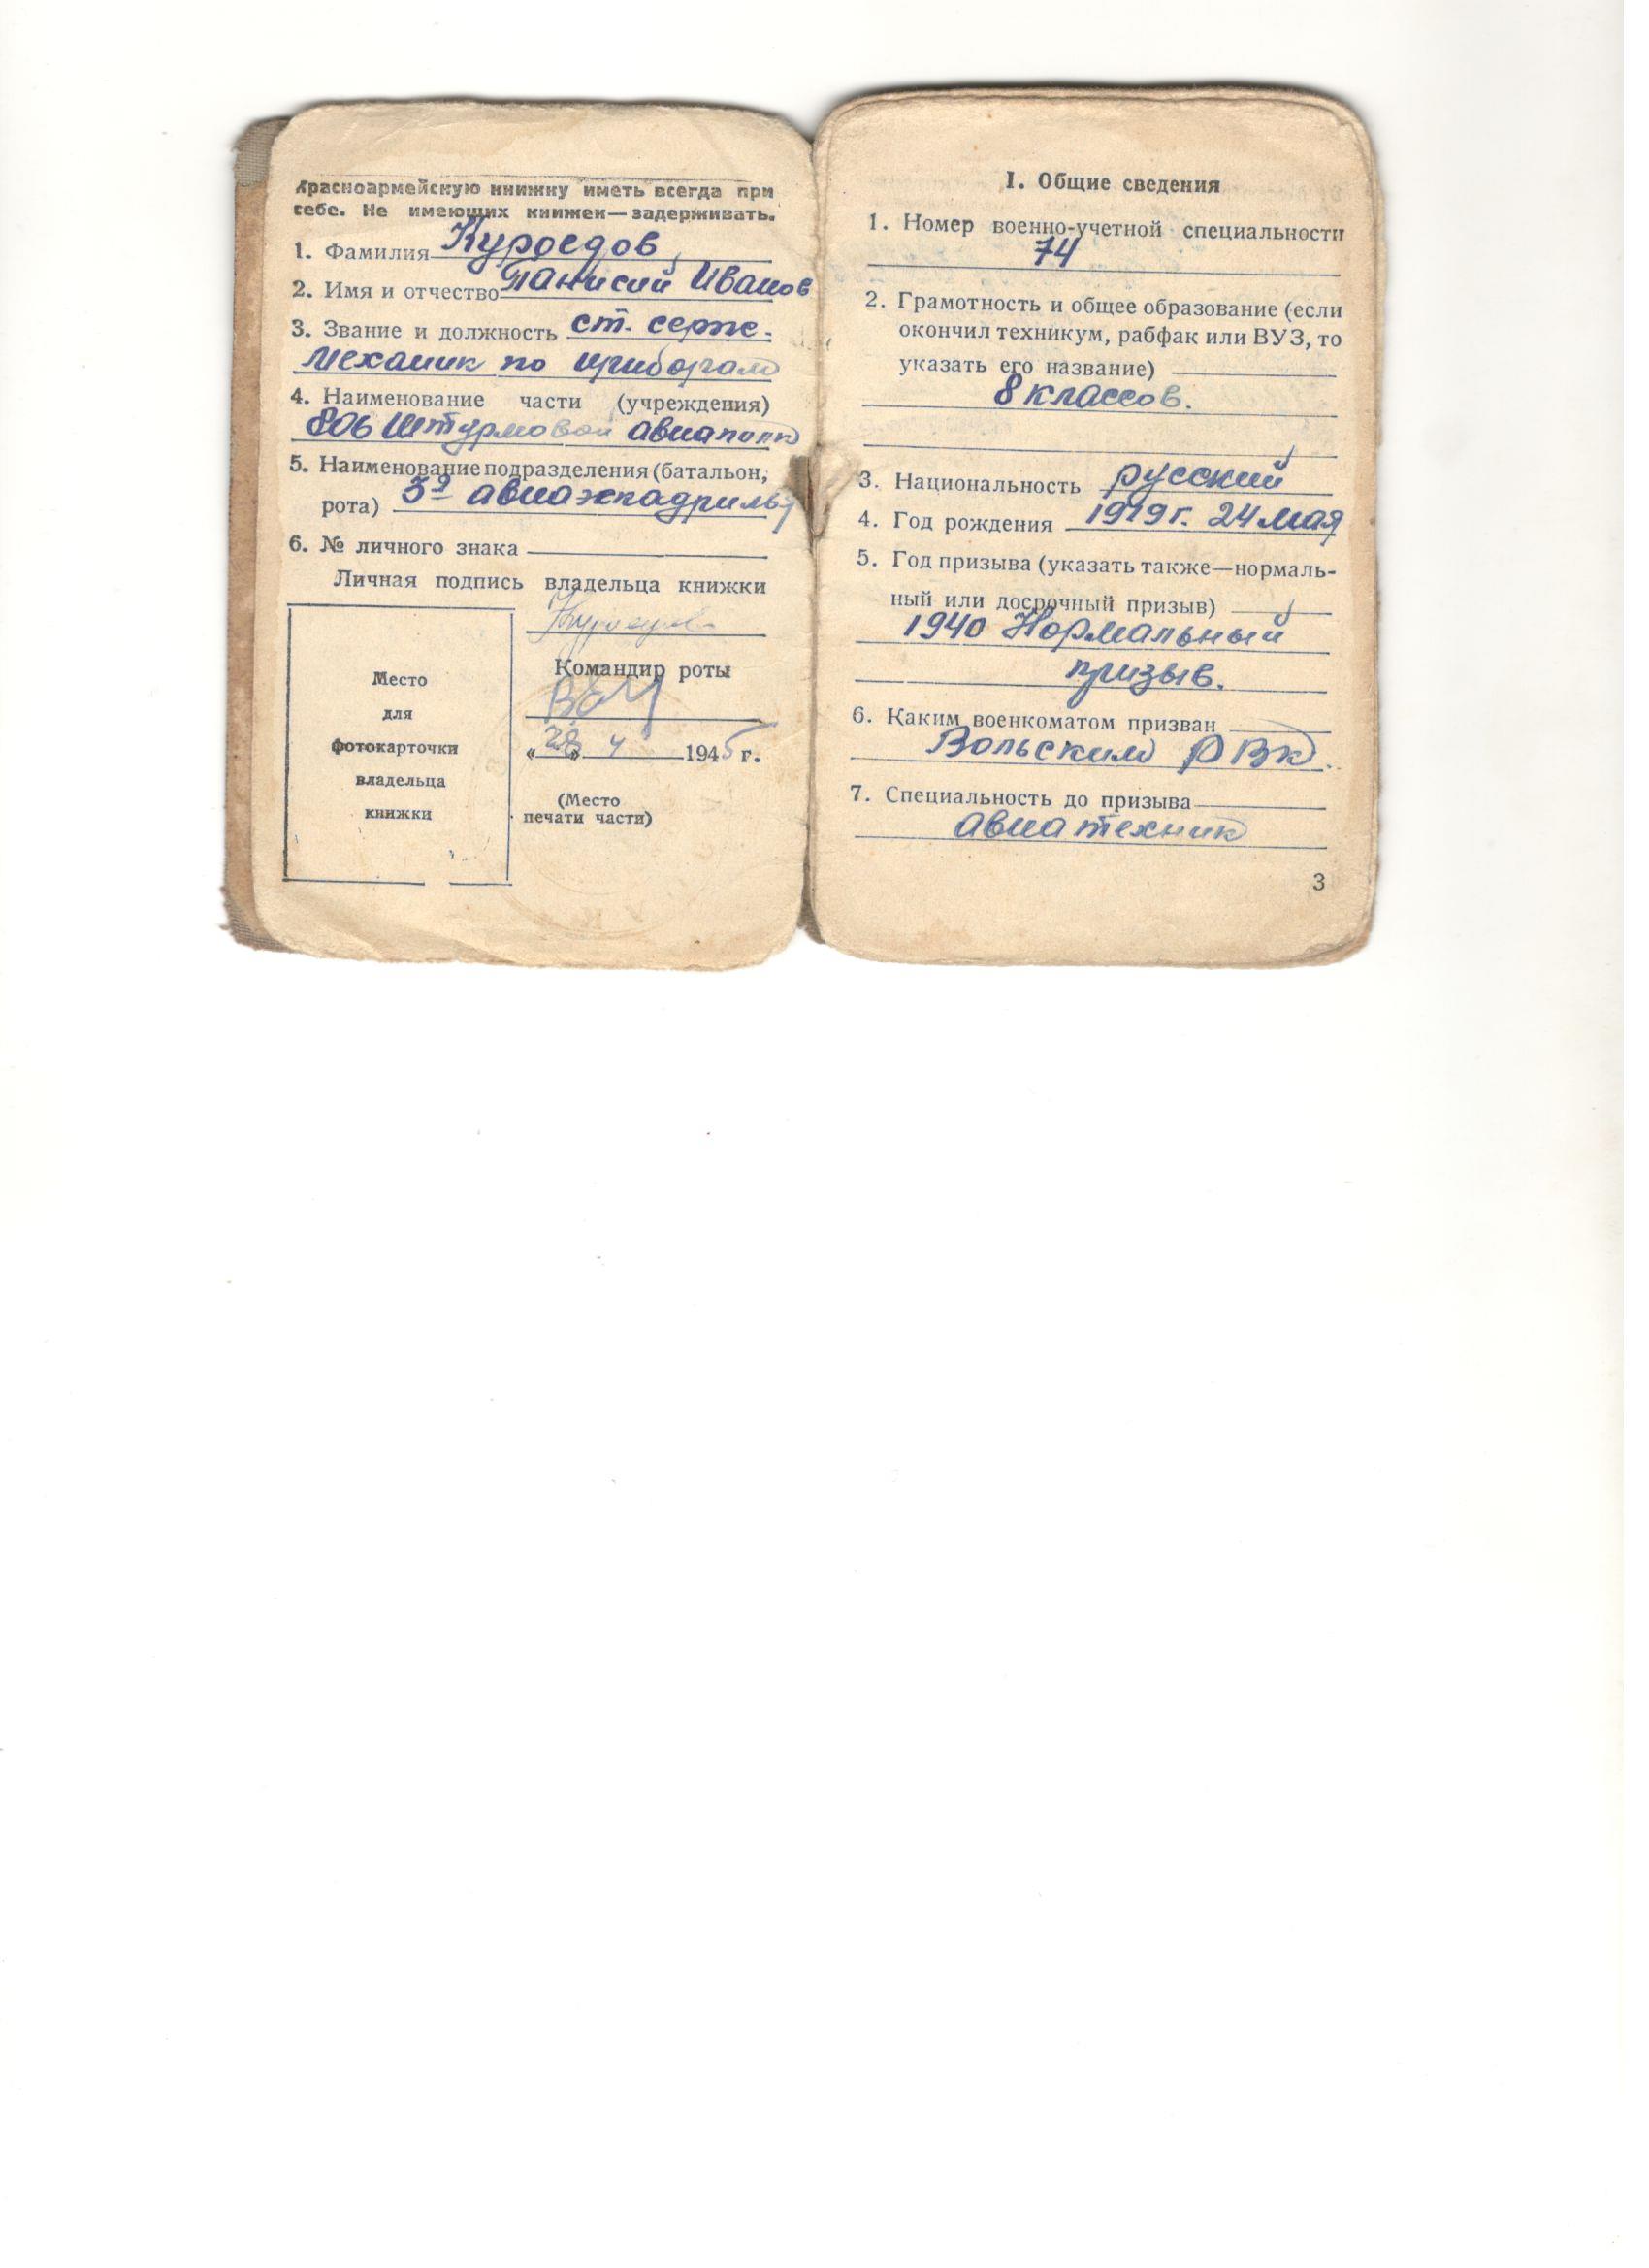 Красноармейскую книжку иметь всегда при
себе. Не имеющих книжек—задерживать.
1. Фамилия Куроедов
2. Имя и отчество Панисий Иванов
3. Звание и должность ст. серж.
механик по приборам
4. Наименование части (учреждения)
806 Штурмовой авиаполк
5. Наименование подразделения (батальон,
рота) 3я авиаэскадрилья
6. № личного знака
Личная подпись владельца книжки
Куроедов
Командир роты
«28» 4 1945 г.
Место
для
фотокарточки
владельца
книжки
(Место
печати части)
I. Общие сведения
1. Номер военно-учетной специальности
74
2. Грамотность и общее образование (если
окончил техникум, рабфак или ВУЗ, то
указать его название)
8 классов.
3. Национальность русский
4. Год рождения 1919 г. 24 мая
5. Год призыва (указать также—нормаль-
ный или досрочный призыв)
1940 Нормальный
призыв.
6. Каким военкоматом призван
Вольским РВК.
7. Специальность до призыва
авиатехник
3